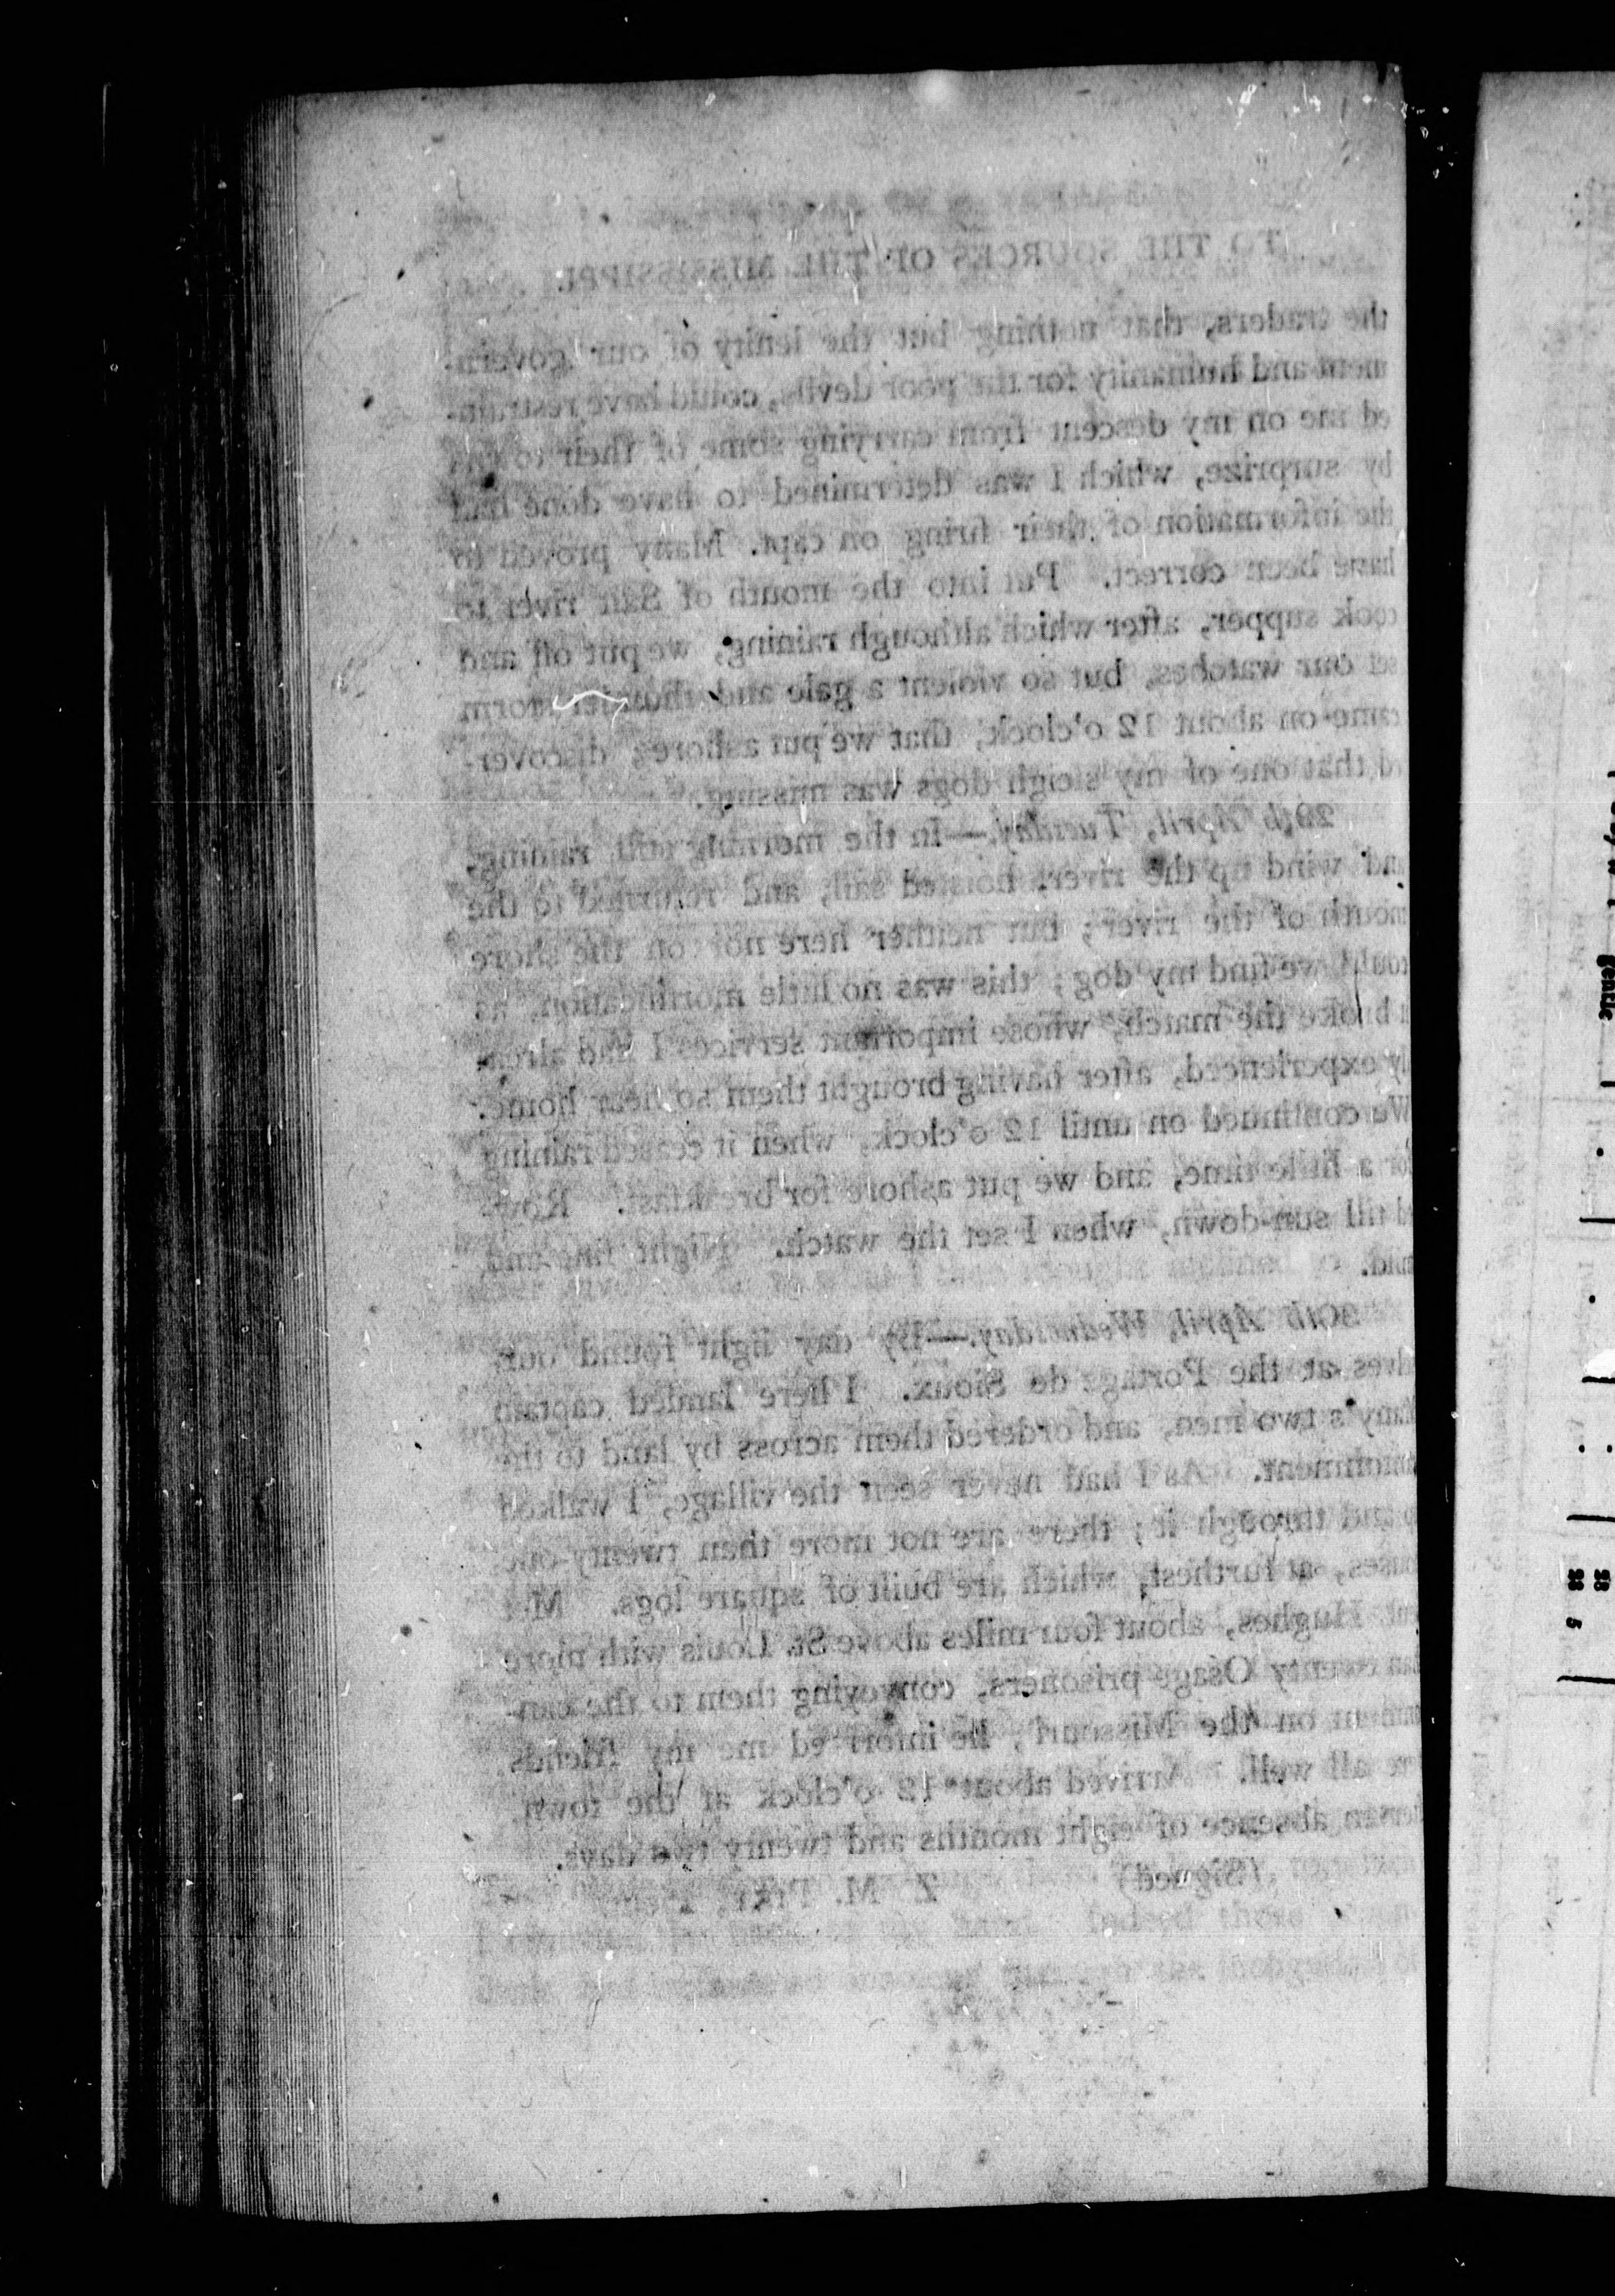 TO THE SOURCES OF THE MISSISSIPPI.
the traders, that nothing but the lenity of our govern-
ment and humanity for the poor devils, could have restrain-
ed me on my descent from carrying some of their towns
by surprize, which I was determined to have done had
the information of their firing on capt. Many proved to
have been correct. Put into the mouth of Salt river to
cook supper, after which although raining, we put off and
set our watches, but so violent a gale and thunder storm
came on about 12 o'clock, that we put ashore, discover-
ed that one of my sleigh dogs was missing.
29th April, Tuesday.—In the morning still raining,
and wind up the river, hoisted sail, and returned to the
mouth of the river; but neither here nor on the shore
could we find my dog; this was no little mortification, as
it broke the match, whose important services I had alrea-
dy experienced, after having brought them so near home.
We continued on until 12 o'clock, when it ceased raining
for a little time, and we put ashore for breakfast. Row-
ed till sun-down, when I set the watch. Night fine and
mild.
30th April, Wednesday.—By day light found our-
selves at the Portage de Sioux. I here landed captain
Many's two men, and ordered them across by land to the
cantonment. As I had never seen the village, I walked
up and through it; there are not more than twenty-one
houses, at furthest, which are built of square logs. Met
Hughes, about four miles above St. Louis with more
than twenty Osage prisoners, conveying them to the can-
tonment on the Missouri; he informed me my friends
were all well. Arrived about 12 o'clock at the town,
after an absence of eight months and twenty two days.
(Signed) Z. M. PIKE,
gentle
28
28 5